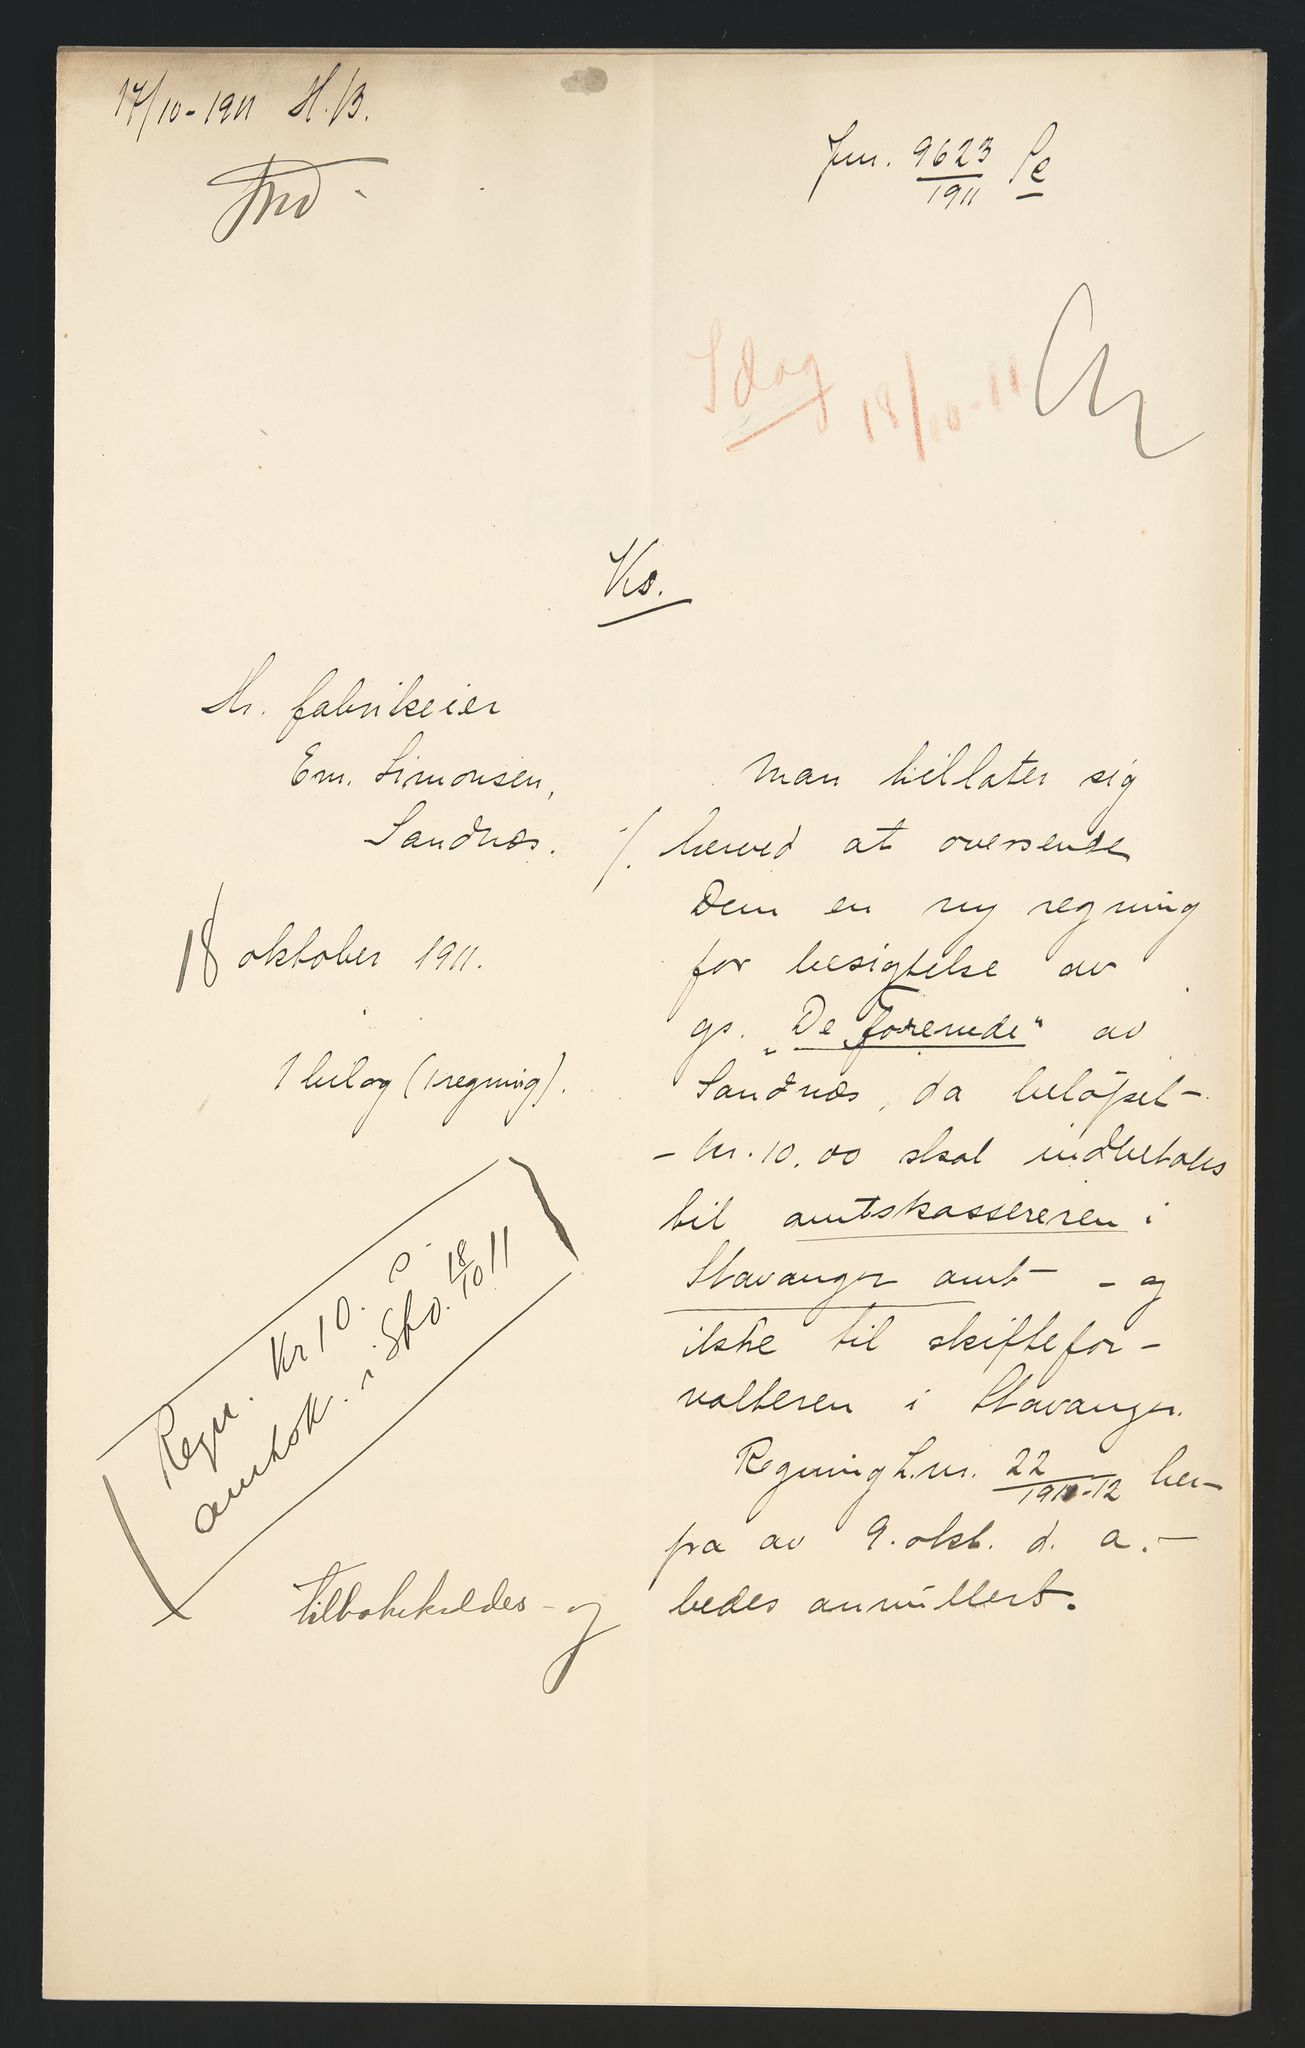 17/10-1911 H.B.
Jnr. 9623/1911 Se
Idag 18/10-11
Ks.
Hr. fabrikeier
Em. Simonsen,
Sandnæs.
18 oktober 1911.
1 bilag (1 regning).
Man tillater sig
./. herved at oversende
Dem en ny regning
for besigtelse av
gs. „De forenede" av
Sandnæs, da beløpet -
- kr. 10.00 skal indbetales
til amtskassereren i
Stavanger amt - og
ikke til skiftefor-
valteren i Stavanger.
Regning L.nr. 22/1911-12 her-
fra av 9. okt. d. a. -
tilbakekaldes - og bedes annullert.
Regn. Kr 10.
amtsk. i Sta. 18/10 11